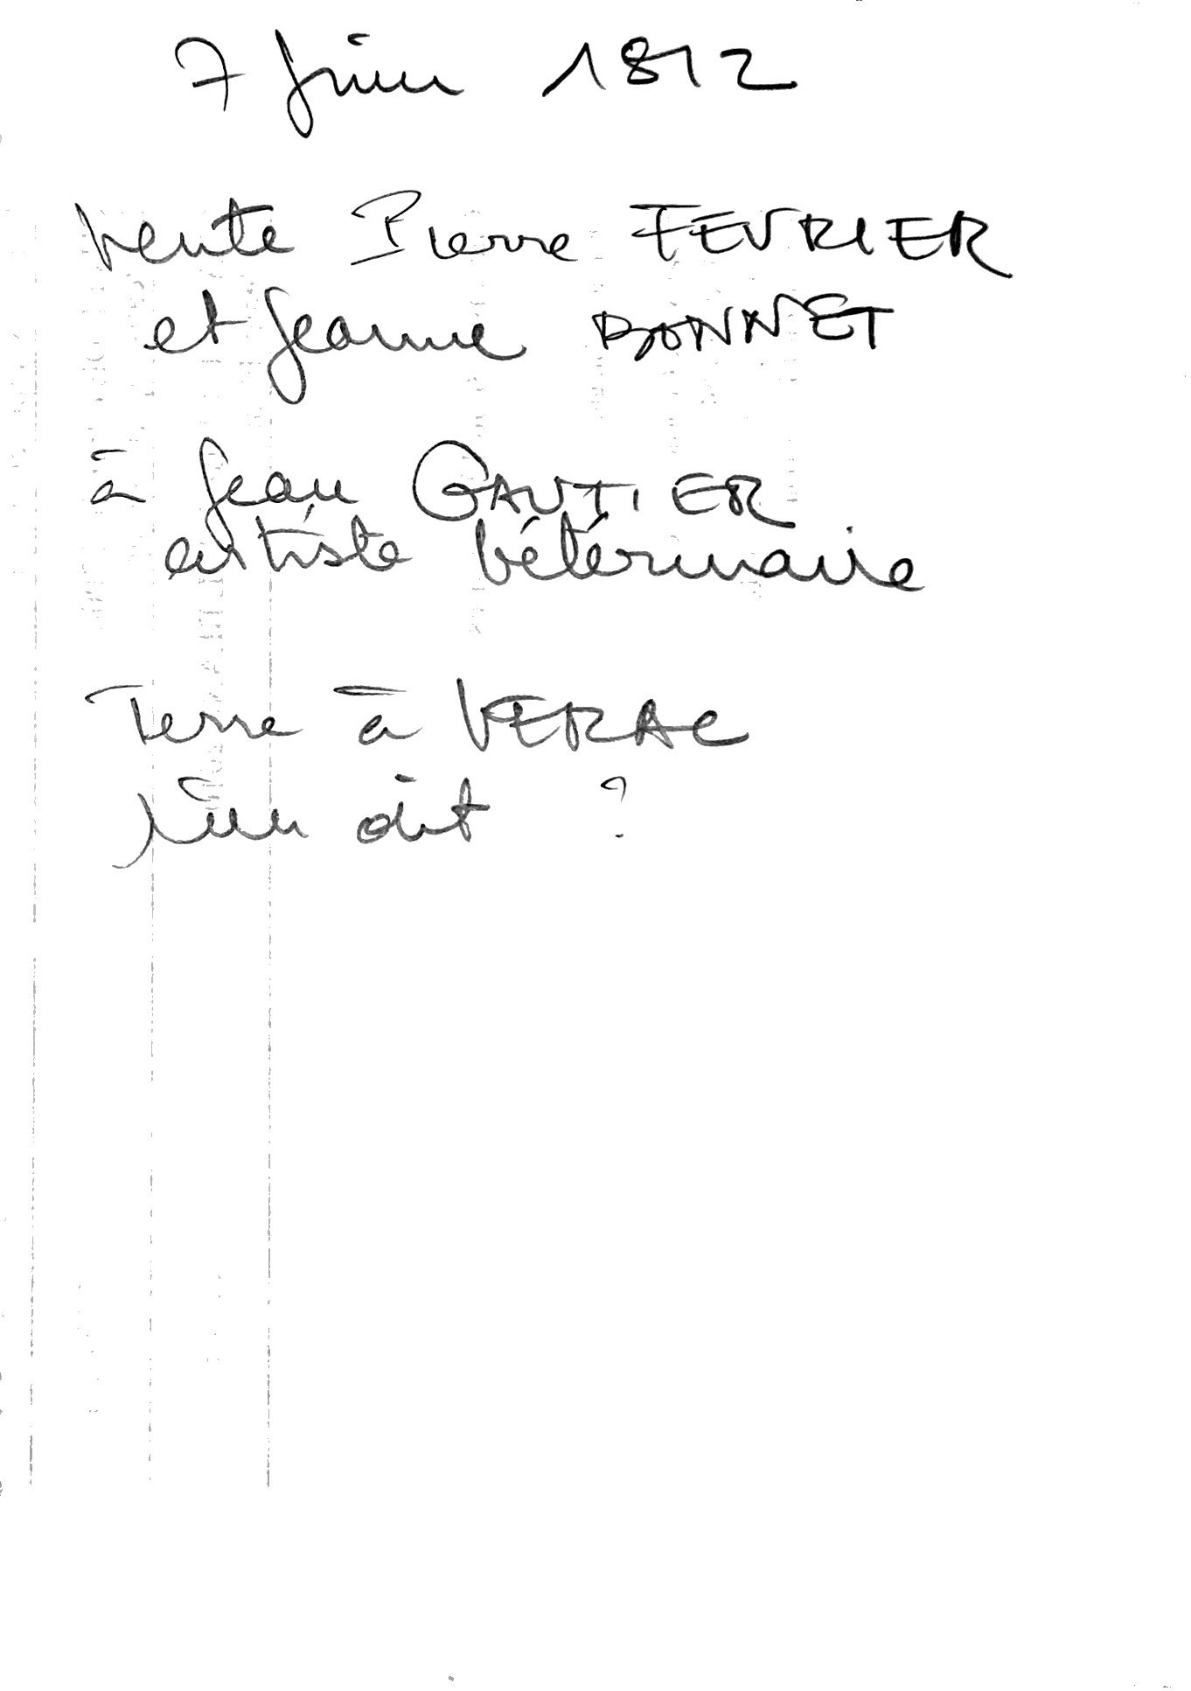 7 juin 1812
Vente Pierre FEVRIER
et Jeanne BONNET
à Jean GAUTIER
artiste vétérinaire
Terre à VERAC
lieu dit ?